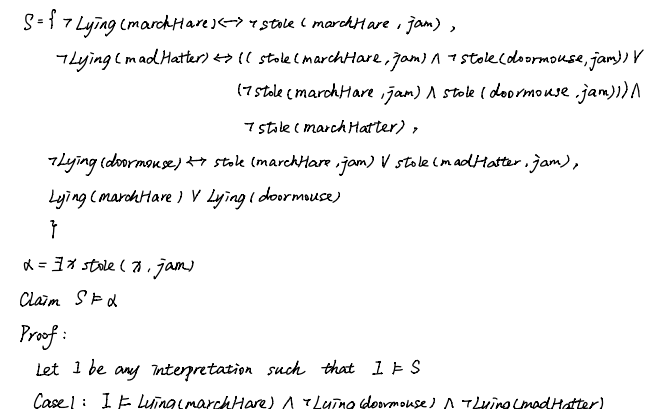 S={ ¬Lying(marchHare)↔¬stole(marchHare,jam),
¬Lying(madHatter)↔((stole(marchHare,jam)∧¬stole(doormouse,jam))∨
(¬stole(marchHare,jam)∧stole(doormouse,jam)))∧
¬stole(marchHatter),
¬Lying(doormouse)↔stole(marchHare,jam)∨stole(madHatter,jam),
Lying(marchHare)∨Lying(doormouse)
}
α=∃x stole(x,jam)
Claim S⊨α
Proof:
Let I be any interpretation such that I⊨S
Case1: I⊨Lying(marchHare)∧¬Lying(doormouse)∧¬Lying(madHatter)